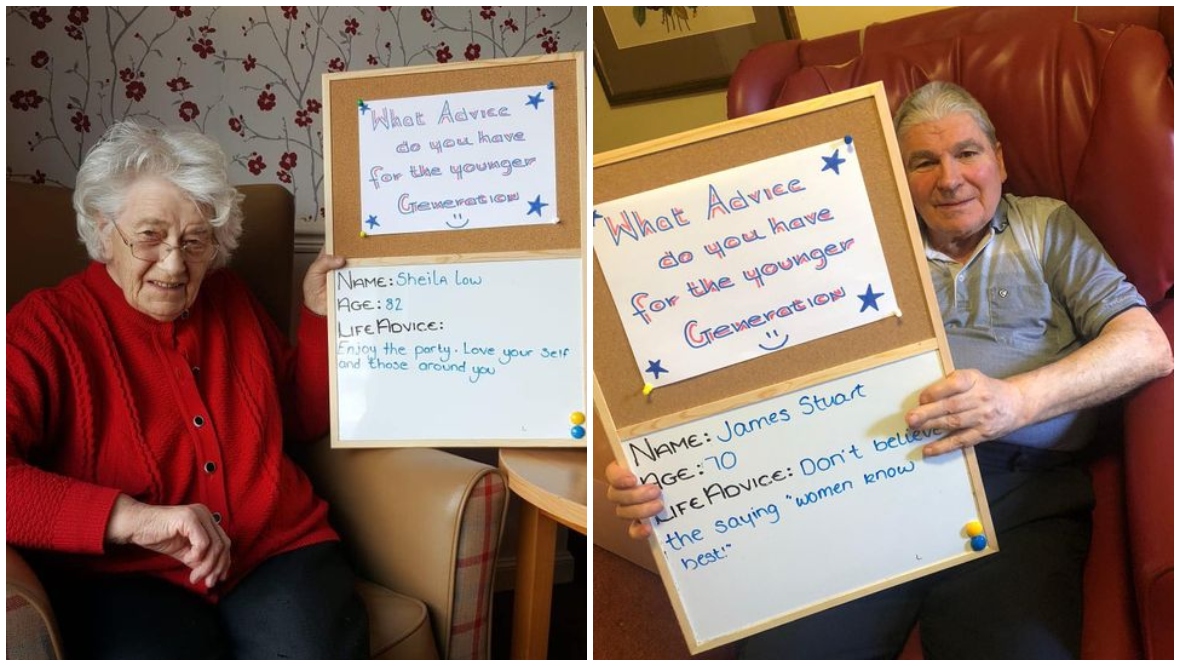 What Advice
do you have
for the younger
Generation
NAME: Sheila Low
AGE: 82
LIFE ADVICE:
Enjoy the party. Love your self
and those around you
What Advice
do you have
for the younger
Generation
NAME: James Stuart
AGE: 70
LIFE ADVICE: Don't believe
the saying "women know
best!"